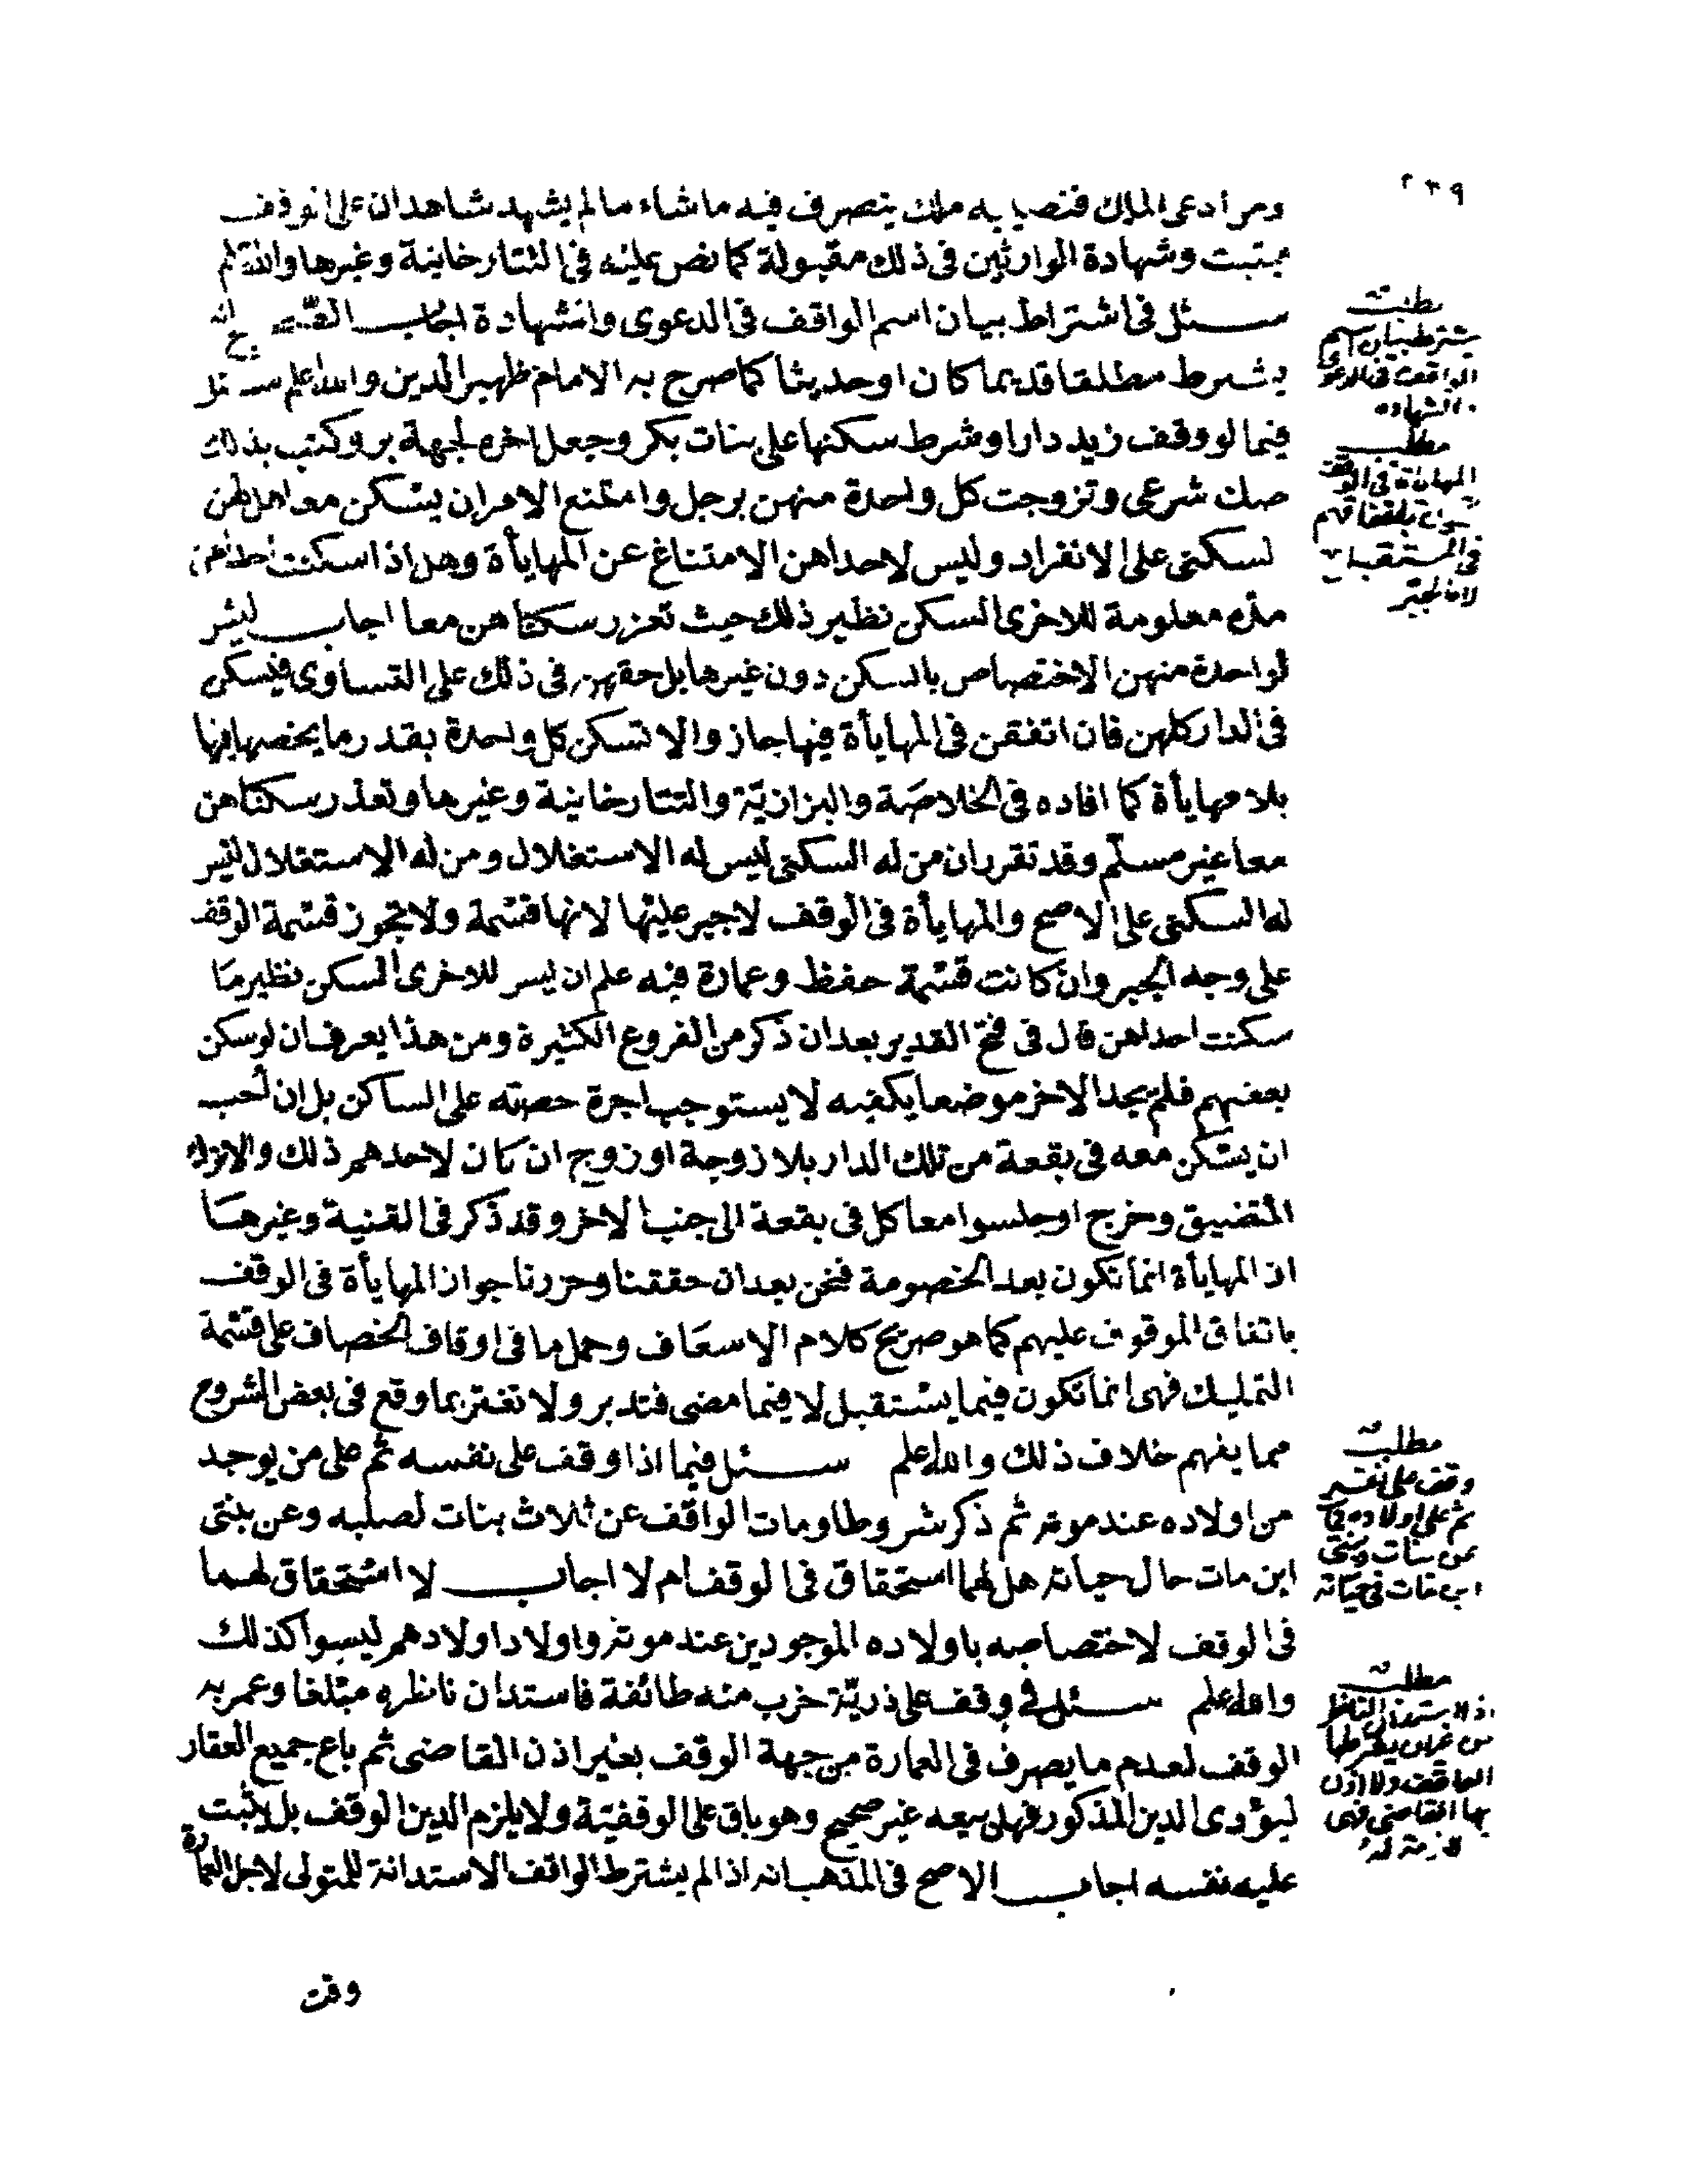 ٢٣٩
ومن ادعى الملك فنصيبه ملك يتصرف فيه ما شاء ما لم يشهد شاهدان على الوقف
فيثبت وشهادة الوارثين فى ذلك مقبولة كما نص عليه فى التتارخانية وغيرها والله اعلم
سئل فى اشتراط بيان اسم الواقف فى الدعوى والشهادة اجاب الصحيح انه
يشرط مطلقا قديما كان او حديثا كما صرح به الامام ظهير الدين والله اعلم سئل
فيما لو وقف زيد دارا وشرط سكنها على بنات بكر وجعل اخره لجهة بر وكتب بذلك
صك شرعى وتزوجت كل واحدة منهن برجل وامتنع الامر ان يسكن معا هل لهن
لسكنى على الانفراد وليس لاحداهن الامتناع عن المهايأة وهل اذا سكنت احداهن
مدة معلومة للاخرى السكن نظير ذلك حيث تعزر سكناهن معا اجاب ليس
لواحدة منهن الاختصاص بالسكن دون غيرها بل حقهن فى ذلك على التساوى فيسكن
فى الدار كلهن فان اتفقن فى المهايأة فيها جاز والا تسكن كل واحدة بقدر ما يخصها فيها
بلا مهايأة كما افاده فى الخلاصة والبزازية والتتارخانية وغيرها وتعذر سكناهن
معا غير مسلم وقد تقرر ان من له السكنى ليس له الاستغلال ومن له الاستغلال ليس
له السكنى على الاصح والمهايأة فى الوقف لا جبر عليها لانها قسمة ولا تجوز قسمة الوقف
على وجه الجبر وان كانت قسمة حفظ وعمارة فبه علم ان ليس للاخرى السكن نظير ما
سكنت احداهن قال فى فتح القدير بعد ان ذكر من الفروع الكثيرة ومن هذا يعرف ان لو سكن
بعضهم فلم يجد الاخر موضعا يكفيه لا يستوجب اجرة حصته على الساكن بل ان احب
ان يسكن معه فى بقعة من تلك الدار بلا زوجة او زوج ان كان لاحدهم ذلك والا ترك
المتضيق وخرج او جلسوا معا كل فى بقعة الى جنب الاخر وقد ذكر فى القنية وغيرها
ان المهايأة انما تكون بعد الخصومة فنحن بعد ان حققنا وحررنا جواز المهايأة فى الوقف
باتفاق الموقوف عليهم كما هو صريح كلام الاسعاف وحمل ما فى اوقاف الخصاف على قسمة
التمليك فهى انما تكون فيما يستقبل لا فيما مضى فتدبر ولا تغتر بما وقع فى بعض الشروح
مما يفهم خلاف ذلك والله اعلم سئل فيما اذا وقف على نفسه ثم على من يوجد
من اولاده عند موته ثم ذكر شروطا ومات الواقف عن ثلاث بنات لصلبه وعن بنتى
ابن مات حال حياته هل لهما استحقاق فى الوقف ام لا اجاب لا استحقاق لهما
فى الوقف لاختصاصه باولاده الموجودين عند موته واولاد اولادهم ليسوا كذلك
والله اعلم سئل فى وقف على ذرية خرب منه طائفة فاستدان ناظره مبلغا وعمر به
الوقف لعدم ما يصرف فى العمارة من جهة الوقف بغير اذن القاضى ثم باع جميع العقار
ليؤدى الدين المذكور فهل بيعه غير صحيح وهو باق على الوقفية ولا يلزم الدين الوقف بل يثبت
عليه نفسه اجاب الاصح فى المذهب انه اذا لم يشترط الواقف الاستدانة للمتولى لاجل العمارة
وقت
مطلب
يشترط بيان اسم
الواقف فى الدعوى
والشهادة
مطلب
المهايأة فى الوقف
فى المستقبل
لا بالجبر
مطلب
وقف على نفسه
ثم على اولاده فمات
عن بنات وبنتى
ابن مات فى حياته
مطلب
اذا استدان الناظر
من غير ان يشرطها
الواقف ولا اذن
بها القاضى فهى
لازمة له